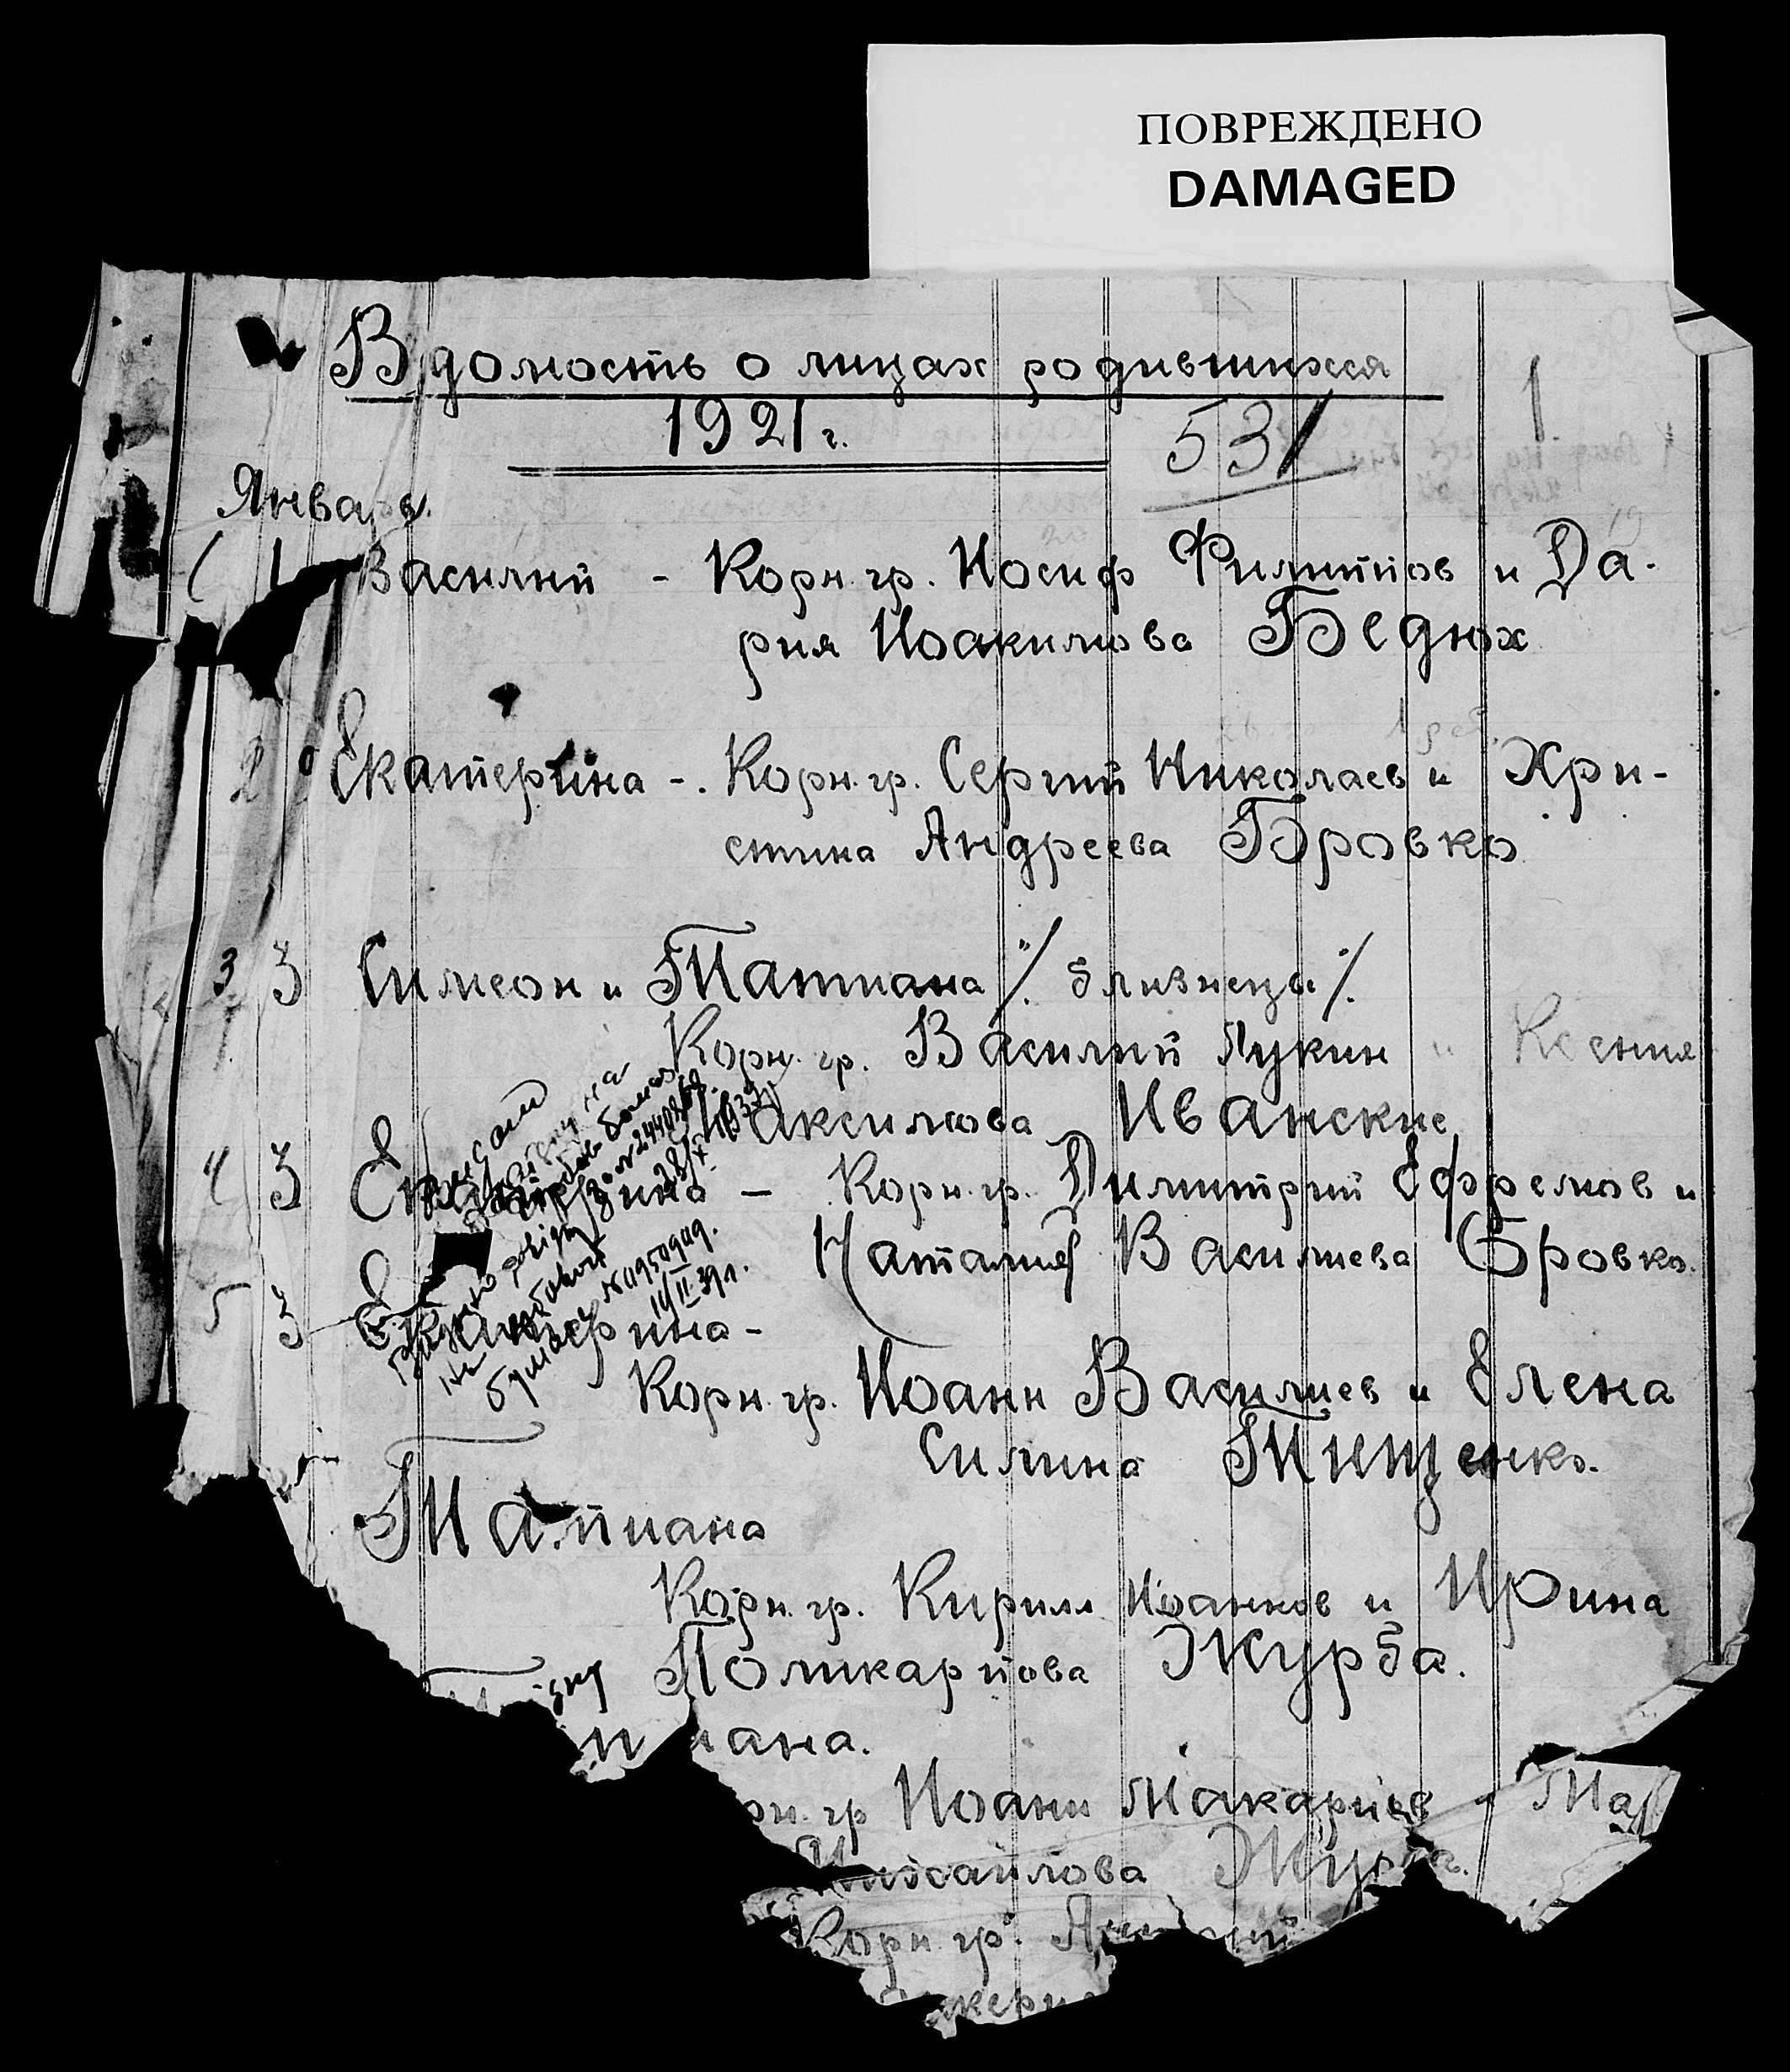 ПОВРЕЖДЕНО
DAMAGED
Вдомость о лицах родившихся
1921 г.
531
1
Январь.
1 Василий - Корн. гр. Иосиф Филиппов и Да-
рия Иоакимова Бедюх
2 Екатерина -. Корн. гр. Сергий Николаев и Хри-
стина Андреева Бровко
3 3 Симеон и Татиана /. близнецы /.
Корн. гр. Василий Лукин и Ксения
Максимова Иванские
4 3 Екатерина - Корн. гр. Димитрий Ефремов и
Наталия Василиева Бровко.
№ 11950909.
14/II 39 г.
5 3 Екатерина -
Корн. гр. Иоанн Василиев и Елена
Симина Тищенко.
Татиана
Корн. гр. Кирилл Иоанков и Ирина
Поликарпова Журба.
иана.
рн. гр Иоанн Макариев и Ма
Михайлова Журба.
Корн. гр.